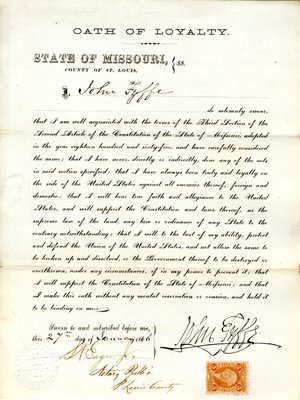 OATH OF LOYALTY.
STATE OF MISSOURI,
COUNTY OF ST. LOUIS,
} ss.
I, John Fyffe
do solemnly swear,
that I am well acquainted with the terms of the Third Section of the
Second Article of the Constitution of the State of Missouri, adopted
in the year eighteen hundred and sixty-five, and have carefully considered
the same; that I have never, directly or indirectly, done any of the acts
in said section specified; that I have always been truly and loyally on
the side of the United States against all enemies thereof, foreign and
domestic; that I will bear true faith and allegiance to the United
States, and will support the Constitution and laws thereof, as the
supreme law of the land, any law or ordinance of any State to the
contrary notwithstanding; that I will, to the best of my ability, protect
and defend the Union of the United States, and not allow the same to
be broken up and dissolved, or the Government thereof to be destroyed or
overthrown, under any circumstances, if in my power to prevent it; that I
will support the Constitution of the State of Missouri; and that I
make this oath without any mental reservation or evasion, and hold it
to be binding on me.
Sworn to and subscribed before me,
this 27th day of January 1866
John Fyffe
Jr.
Notary Public
St Louis County